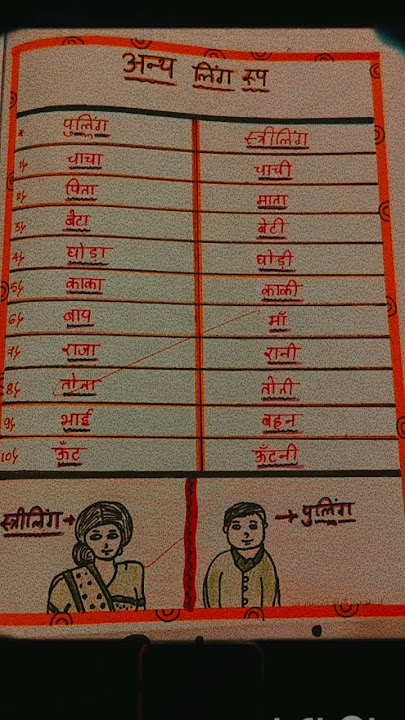 अन्य लिंग रूप
पुलिंग स्त्रीलिंग
1) चाचा चाची
2) पिता माता
3) बेटा बेटी
4) घोडा घोड़ी
5) काका काकी
6) बाप माँ
7) राजा रानी
8) तोता तोती
9) भाई बहन
10) ऊँट ऊँटनी
स्त्रीलिंग → → पुलिंग